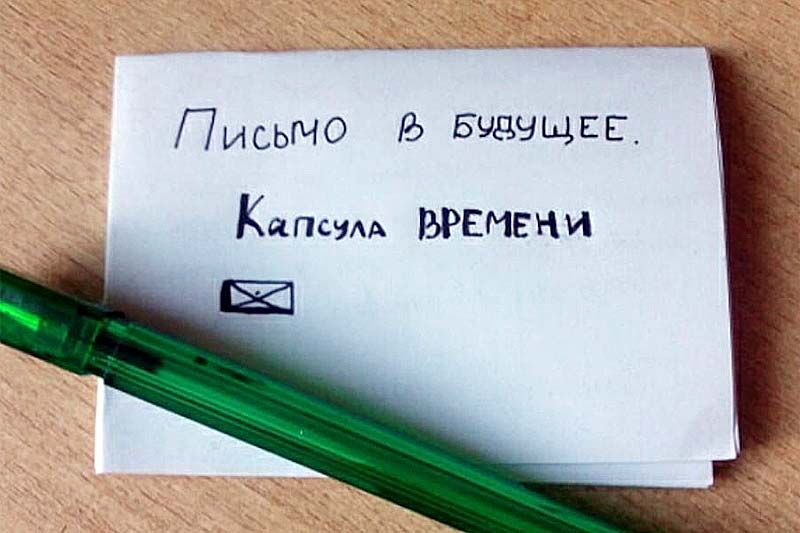 Письмо в будущее.
Капсула времени